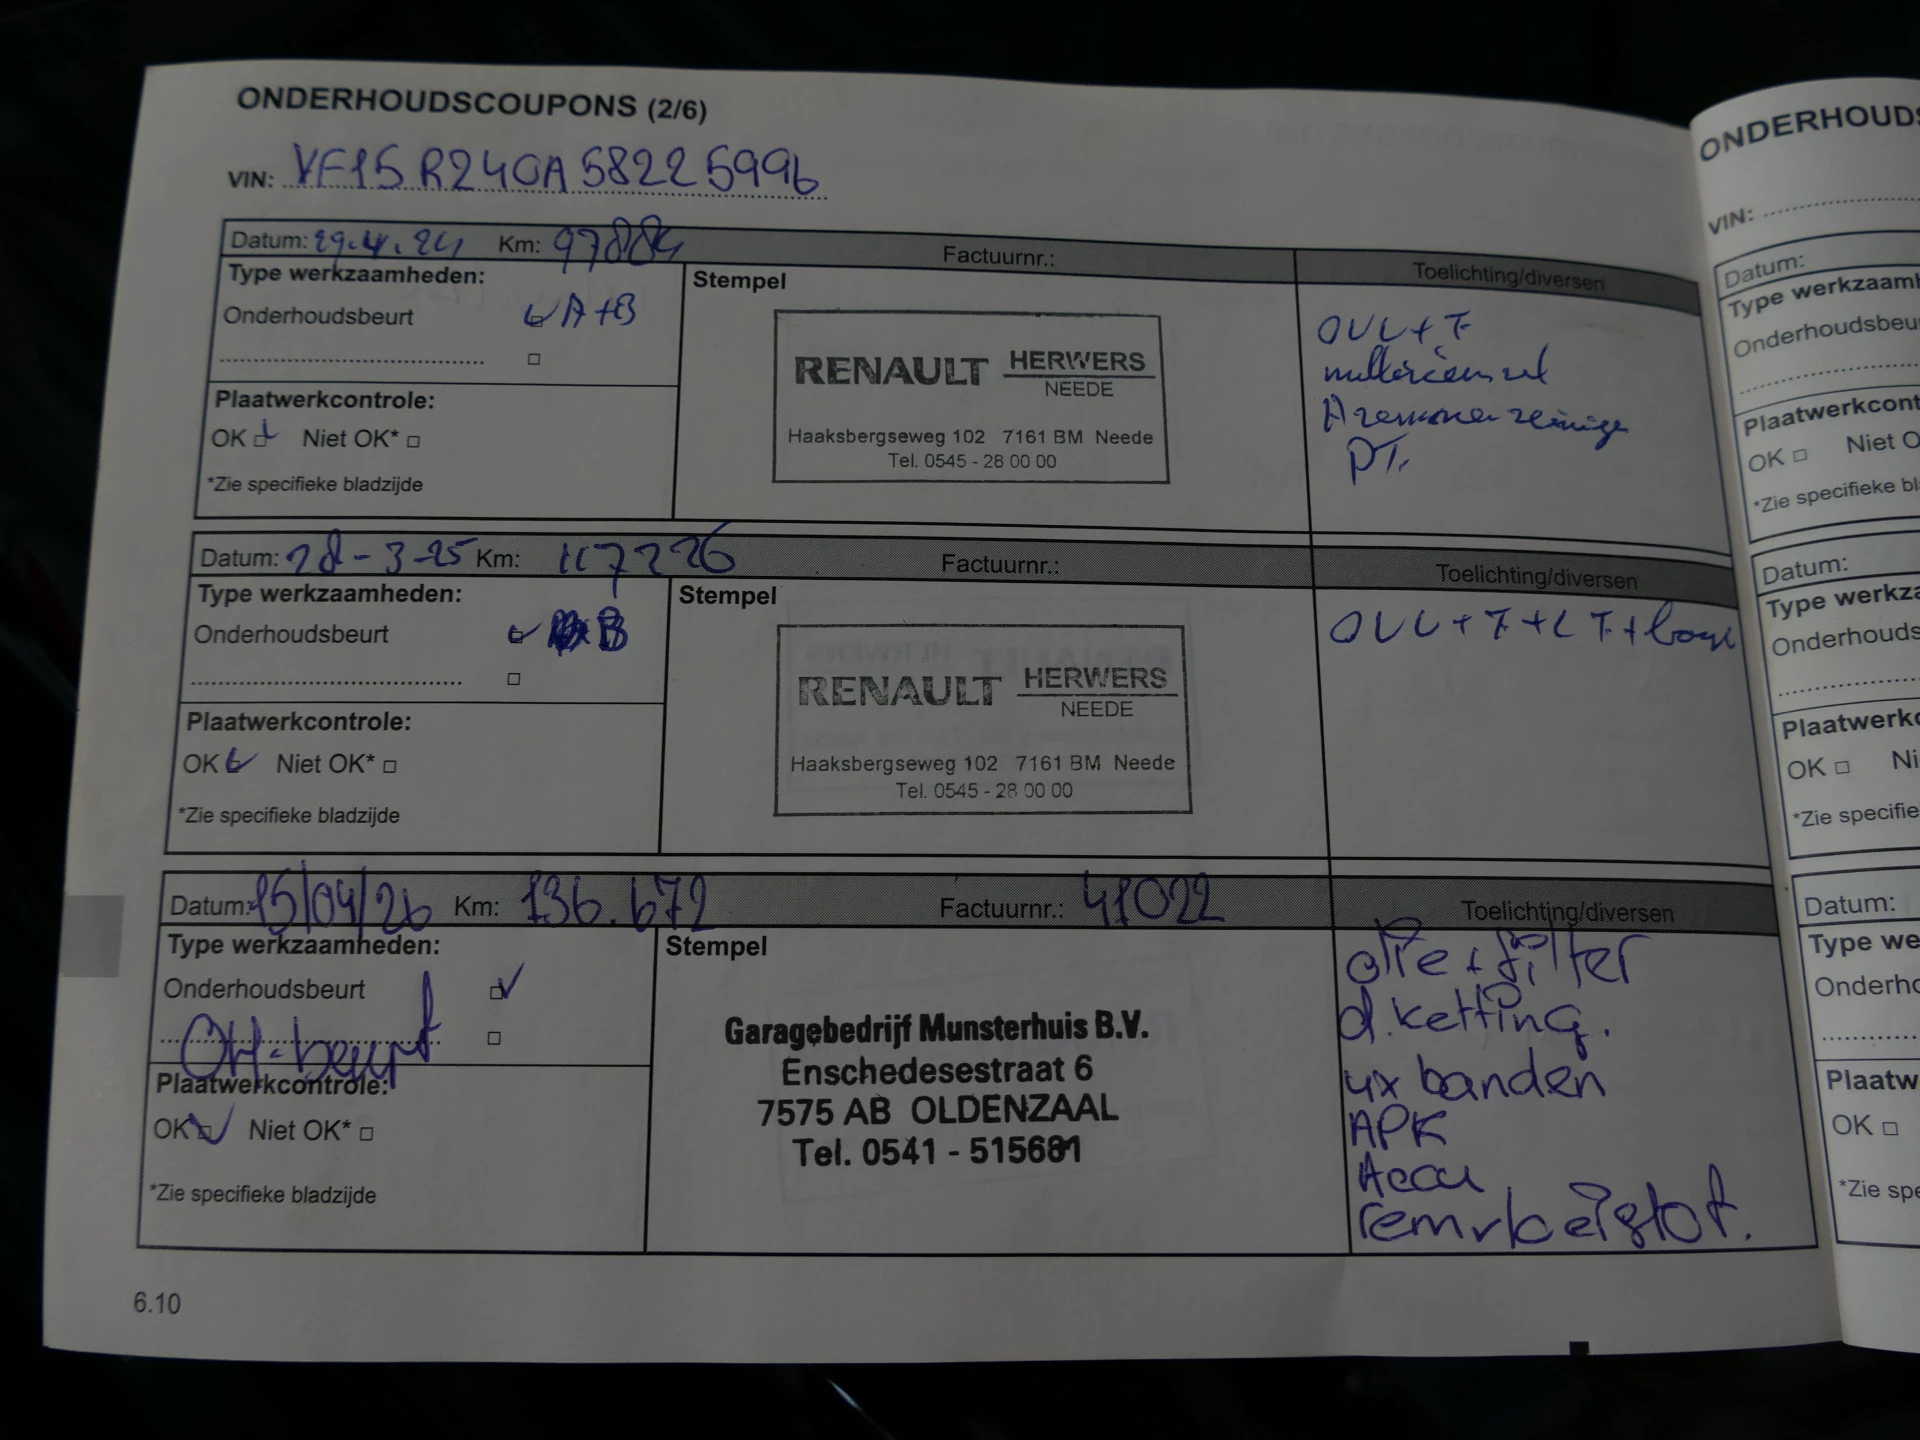 ONDERHOUDSCOUPONS (2/6)
VIN: VF15R240A58225996
Datum: 29.4.24 Km: 97884 Factuurnr.: Toelichting/diversen
Type werkzaamheden:
Stempel
Onderhoudsbeurt A+B
OVL + F
RENAULT HERWERS
NEEDE
Plaatwerkcontrole:
OK Niet OK*
Haaksbergseweg 102 7161 BM Neede
Tel. 0545 - 28 00 00
*Zie specifieke bladzijde
Datum: 28-3-25 Km: 117226 Factuurnr.: Toelichting/diversen
Type werkzaamheden:
Stempel
Onderhoudsbeurt B
OVL + F + LF +
RENAULT HERWERS
NEEDE
Plaatwerkcontrole:
OK Niet OK*
Haaksbergseweg 102 7161 BM Neede
Tel. 0545 - 28 00 00
*Zie specifieke bladzijde
Datum: 15/04/26 Km: 136.672 Factuurnr.: 41022 Toelichting/diversen
Type werkzaamheden:
Stempel
Onderhoudsbeurt
OH-beurt
Plaatwerkcontrole:
OK Niet OK*
*Zie specifieke bladzijde
Garagebedrijf Munsterhuis B.V.
Enschedesestraat 6
7575 AB OLDENZAAL
Tel. 0541 - 515681
olie + filter
d.ketting.
4x banden
APK
Accu
remvloeistof.
6.10
ONDERHOUDS
VIN:
Datum:
Type werkzaamh
Onderhoudsbeu
Plaatwerkcont
OK Niet O
*Zie specifieke bl
Datum:
Type werkza
Onderhouds
Plaatwerkc
OK Ni
*Zie specifie
Datum:
Type we
Onderho
Plaatw
OK
*Zie spe